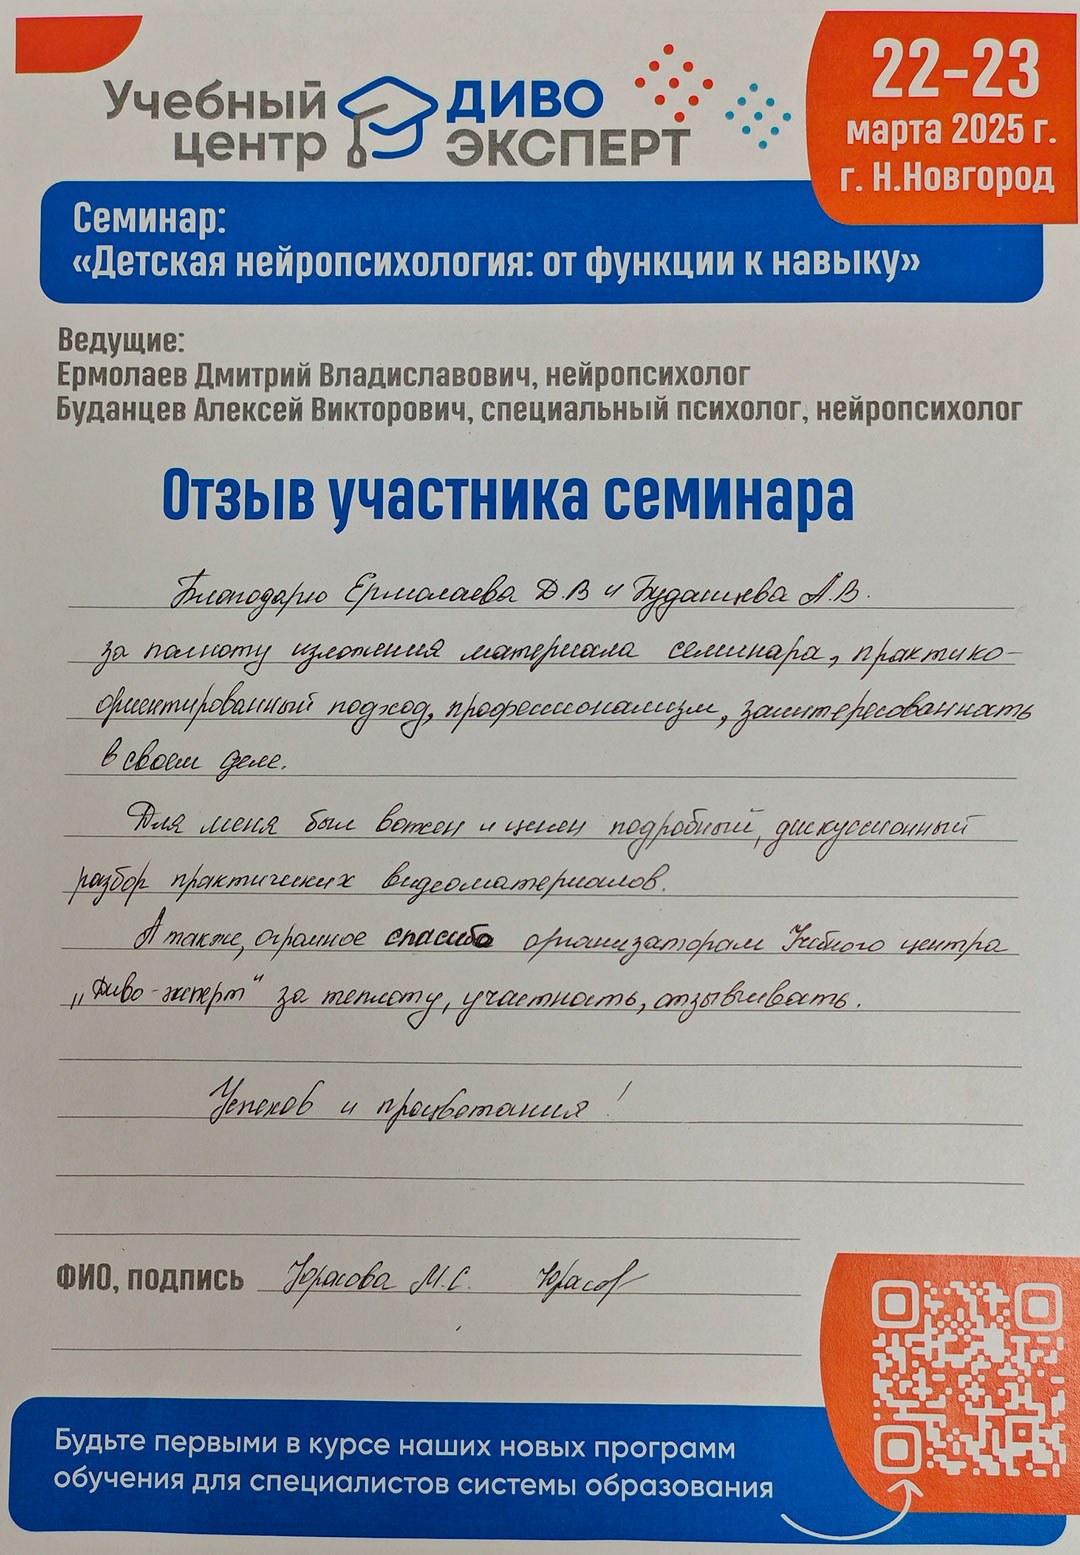 Учебный центр
ДИВО ЭКСПЕРТ
22-23
марта 2025 г.
г. Н.Новгород
Семинар:
«Детская нейропсихология: от функции к навыку»
Ведущие:
Ермолаев Дмитрий Владиславович, нейропсихолог
Буданцев Алексей Викторович, специальный психолог, нейропсихолог
Отзыв участника семинара
Благодарю Ермолаева Д.В и Буданцева А.В.
за полноту изложения материала семинара, практико-
ориентированный подход, профессионализм, заинтересованность
в своем деле.
Для меня был важен и ценен подробный, дискуссионный
разбор практических видеоматериалов.
А также, огромное спасибо организаторам Учебного центра
„Диво-эксперт“ за теплоту, участность, отзывчивость.
Успехов и процветания!
ФИО, подпись М.С.
Будьте первыми в курсе наших новых программ
обучения для специалистов системы образования